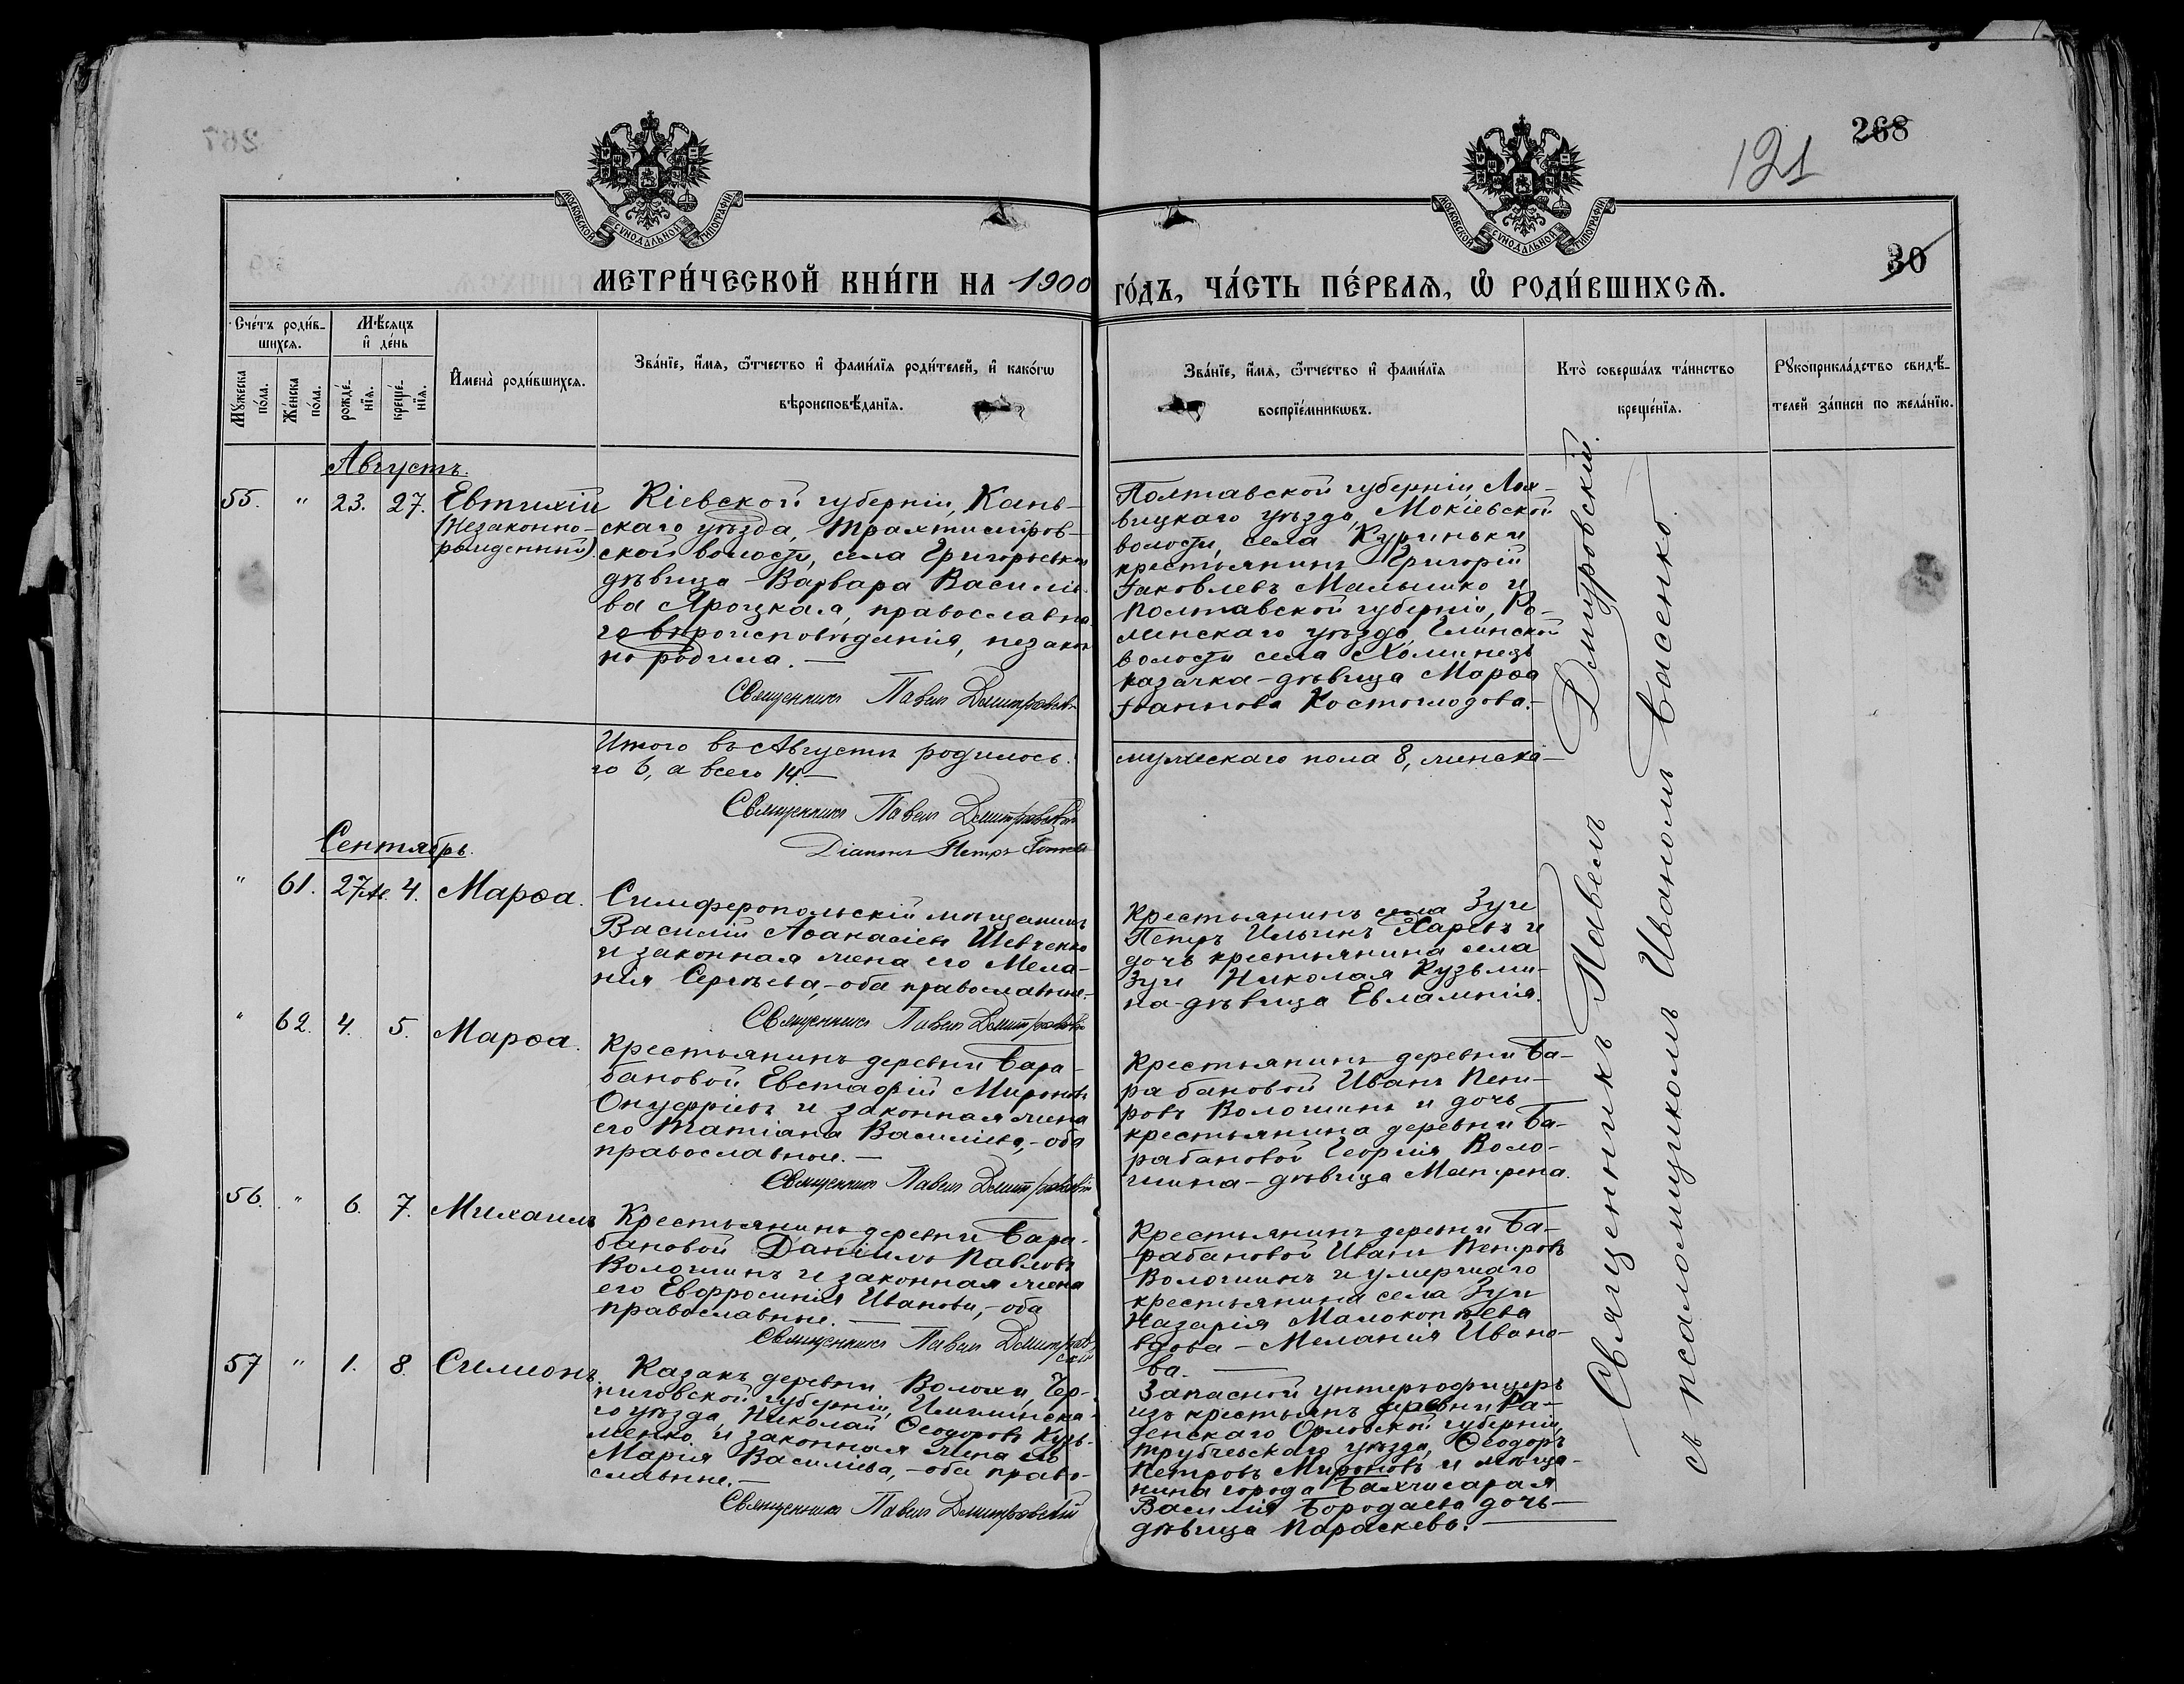 268
121
30
МОСКОВСКОЙ СУНОДАЛЬНОЙ ТИПОГРАФІИ
МОСКОВСКОЙ СУНОДАЛЬНОЙ ТИПОГРАФІИ
МЕТРИ́ЧЕСКОЙ КНИ́ГИ НА 1900
ГО́ДЪ, ЧА́СТЬ ПЕ́РВАѦ, Ѽ РОДИ́ВШИХСѦ.
Сче́тъ роди́в-
шихсѧ.
Мꙋ́жеска
по́ла.
Же́нска
по́ла.
Мѣ́сѧцъ
и҆ де́нь
рожде́-
нїѧ.
креще́-
нїѧ.
И҆мена̀ роди́вшихсѧ.
Зва́нїе, и҆́мѧ, ѻ҆́тчество и҆ фами́лїѧ роди́телей, и҆ како́гѡ
вѣроисповѣ́данїѧ.
Зва́нїе, и҆́мѧ, ѻ҆́тчество и҆ фами́лїѧ
воспрїе́мникѡвъ.
Кто̀ соверша́лъ та́инство
креще́нїѧ.
Рꙋкоприкла́дство свидѣ́-
телей за́писи по жела́нїю.
Августъ.
55. " 23. 27. Евтихій
(Незаконно-
рожденный)
Кіевской губерніи, Канев-
скаго уѣзда, Трахтемиров-
ской волости, села Григорьевки
дѣвица Варвара Василіе-
ва Яроцкая, православна-
го вѣроисповѣданія, незакон-
но родила. —
Священникъ Павелъ Домитровскій
Полтавской губерніи, Лох-
вицкаго уѣзда, Мокіевской
волости, села Куриньки
крестьянинъ Григорій
Іаковлевъ Малышко и
Полтавской губерніи, Ро-
менскаго уѣзда, Глинской
волости села Хоминецъ
казачка-дѣвица Марѳа
Іоаннова Костоглодова.-
Итого въ Августѣ родилось:
го 6, а всего 14. —
мужескаго пола 8, женска-
Священникъ Павелъ Домитровскій
Діаконъ Петръ
Сентябрь.
" 61. 27Ав. 4. Марѳа.
Симферопольскій мѣщанинъ
Василій Аѳанасіевъ Шевченко
и законная жена его Мела-
нія Сергѣева,-оба православные.-
Священникъ Павелъ Домитровскій
Крестьянинъ села Зуи
Петръ Ильинъ Харевъ и
дочь крестьянина села
Зуи Николая Кузьми-
на-дѣвица Евлампія.
" 62. 4. 5. Марѳа.
Крестьянинъ деревни Бара-
бановой Евстафій Мироновъ
Онуфріевъ и законная жена
его Татіана Василіева,-оба
православные. —
Священникъ Павелъ Домитровскій
Крестьянинъ деревни Ба-
рабановой Иванъ Пет-
ровъ Волошинъ и дочь
крестьянина деревни Ба-
рабановой Георгія Воло-
шина-дѣвица Матрена.
56. " 6. 7. Михаилъ
Крестьянинъ деревни Бара-
бановой Даніилъ Павловъ
Волошинъ и законная жена
его Евфросинія Иванова,-оба
православные. —
Священникъ Павелъ Домитров-
скій
Крестьянинъ деревни Ба-
рабановой Иванъ Петровъ
Волошинъ и умершаго
крестьянина села Зуи
Назарія Малокоптева
вдова-Меланія Ивано-
ва. —
57 " 1. 8. Симеонъ.
Казакъ деревни Волохи, Чер-
ниговской губерніи,
го уѣзда, Николай Ѳеодоровъ Кузь-
менко и законная жена его
Марія Василіева,-оба право-
славные. —
Священникъ Павелъ Домитровскій
Запасной унтеръ-офицеръ
изъ крестьянъ деревни Ра-
денскаго Орловской губерніи,
Трубчевскаго уѣзда, Ѳеодоръ
Петровъ Мироновъ и мѣща-
нина города Бахчисарая
Василія Бородаева дочь-
дѣвица Параскева. —
Священникъ Павелъ Домитровскій
съ псаломщикомъ Иваномъ Власенко.